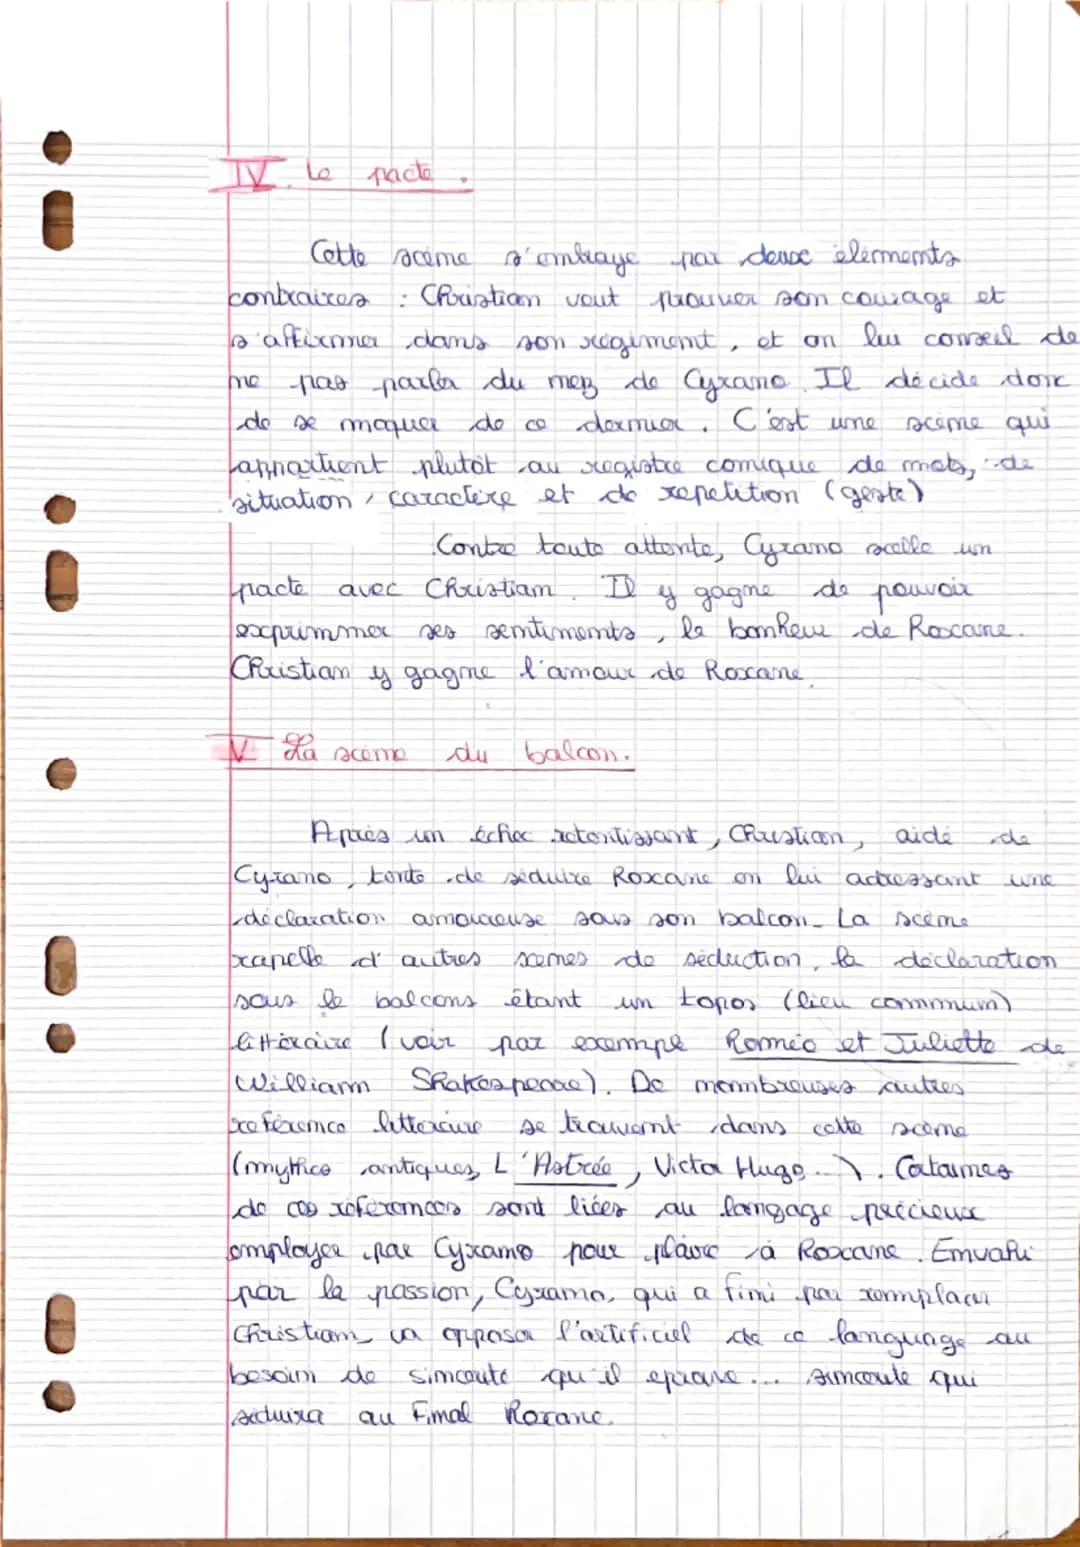 IV. Le pacte.
Cette scène s'embraye par deux élements
contraires : Christian veut prouver son courage et
s'affirmer dans son régiment, et on lui conseil de
ne pas parler du nez de Cyrano. Il décide donc
de se moquer de ce dernier. C'est une scène qui
appartient plutôt au registre comique de mots, de
situation, caractère et de repetition (geste)
Contre toute attente, Cyrano scelle un
pacte avec Christian. Il y gagne de pouvoir
exprimmer ses sentiments, le bonheur de Roxane.
Christian y gagne l'amour de Roxane.
V La scène du balcon.
Après un échec retentissant, Christian, aidé de
Cyrano, tente de séduire Roxane en lui adressant une
déclaration amoureuse sous son balcon. La scène
rapelle d'autres scènes de séduction, la déclaration
sous le balcons étant un topos (lieu commum)
littéraire (voir par exemple Roméo et Juliette de
William Shakespeare). De nombreuses autres
référence litteraire se trouvent dans cette scène
(mythes antiques, L'Astrée, Victor Hugo...). Certaines
de ces références sont liées au langage précieux
employer par Cyrano pour plaire à Roxane. Envahi
par la passion, Cyrano, qui a fini par remplacer
Christian, va opposer l'artificiel de ce language au
besoin de sincerité qu'il eprouve... sincerité qui
séduira au final Roxane.